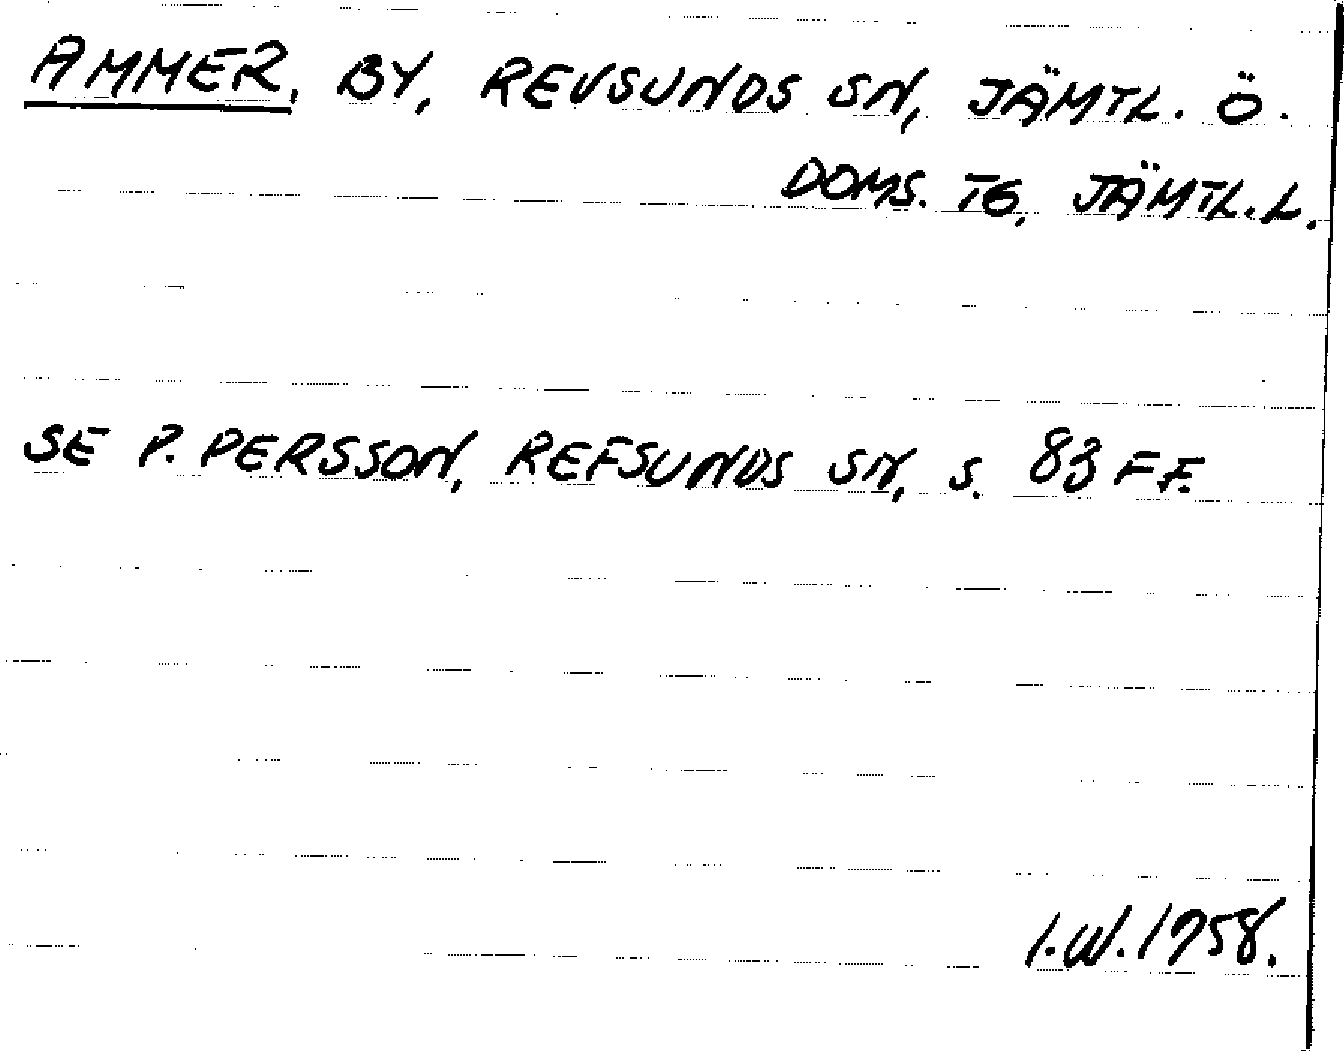 AMMER, BY, REVSUNDS SN, JÄMTL. Ö.
DOMS. TG, JÄMTL. L.
SE P. PERSSON, REFSUNDS SN, S. 83 FF.
I.W. 1958.